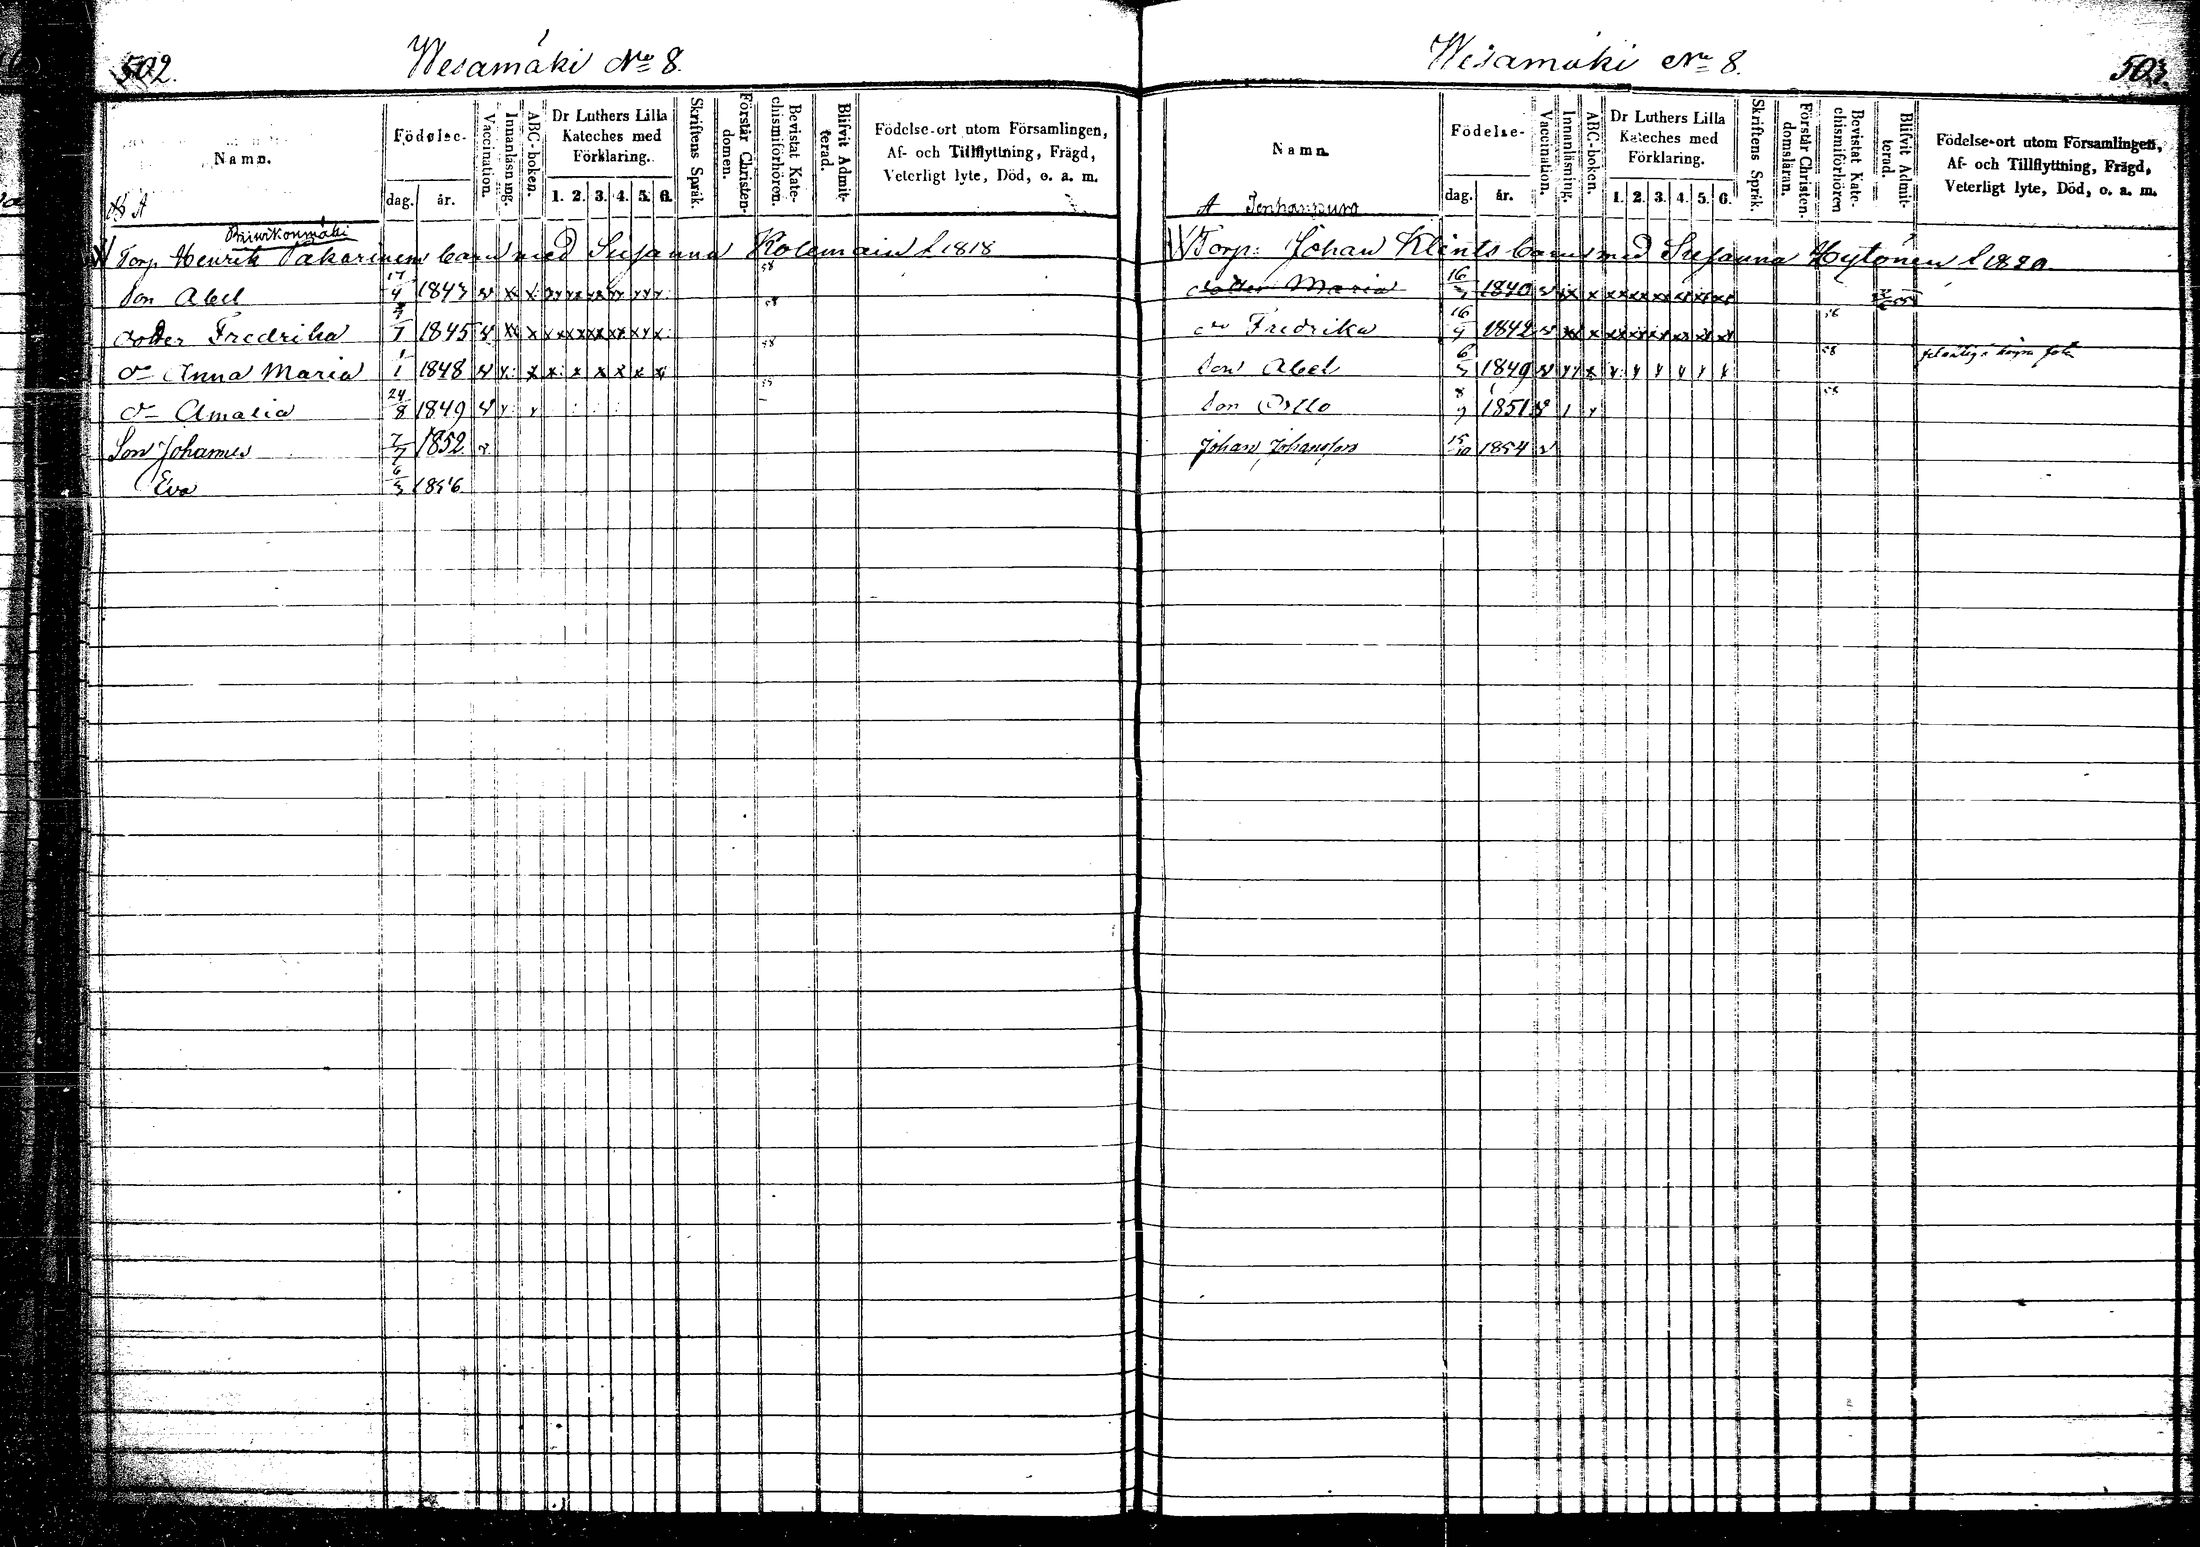 502.
Wesamäki No 8.
Namn.
Födelse-
dag.
år.
Vaccination.
Innanläsning.
ABC-boken.
Dr Luthers Lilla
Kateches med
Förklaring.
1. 2. 3. 4. 5. 6.
Skriftens Språk.
Förstår Christen-
domen.
Bevistat Kate-
chismiförhören.
Blifvit Admit-
terad.
Födelse-ort utom Församlingen,
Af- och Tillflyttning, Frägd,
Veterligt lyte, Död, o. a. m.
Torp Henrik Pakarinens barn med Susanna Kolemain f 1818
Son Abel 17/4 1843
dotter Fredrika 1845
do Anna Maria 1/1 1848
do Amalia 24/8 1849
Son Johannes 7/7 1852
Eva 6/3 1856
Wesamäki No 8.
503.
Namn.
Födelse-
dag.
år.
Vaccination.
Innanläsning.
ABC-boken.
Dr Luthers Lilla
Kateches med
Förklaring.
1. 2. 3. 4. 5. 6.
Skriftens Språk.
Förstår Christen-
domsläran.
Bevistat Kate-
chismiförhören
Blifvit Admit-
terad.
Födelse-ort utom Församlingen,
Af- och Tillflyttning, Frägd,
Veterligt lyte, Död, o. a. m.
Torp: Johan Klints barn med Susanna Hytönen f 1820
dotter Maria 1840
do Fredrika 16/9 1842
Son Abel 6/3 1849
Son Otto 1851
Johan Johansson 15/10 1854